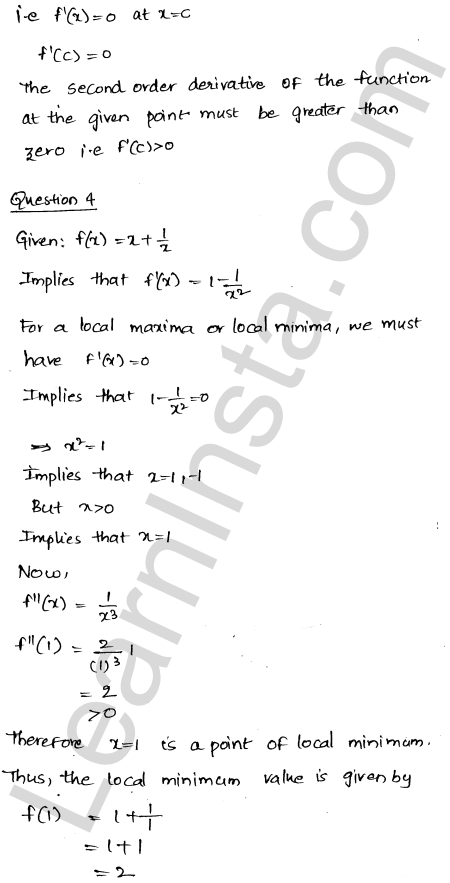 i.e f'(x)=0 at x=c
f'(c) = 0
The second order derivative of the function
at the given point must be greater than
zero i.e f'(c)>0
Question 4
Given: f(x) = x + 1/x
Implies that f'(x) = 1 - 1/x²
For a local maxima or local minima, we must
have f'(x) = 0
Implies that 1 - 1/x² = 0
⇒ x² = 1
Implies that x = 1, -1
But x>0
Implies that x = 1
Now,
f''(x) = 1/x³
f''(1) = 2/(1)³ 1
= 2
>0
Therefore x=1 is a point of local minimum.
Thus, the local minimum value is given by
f(1) = 1 + 1/1
= 1+1
= 2
LearnInsta.com